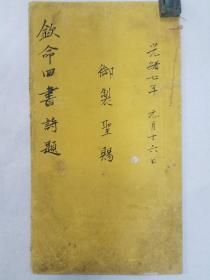 光緒七年 元月十六日
御製聖賜
欽命四書詩題